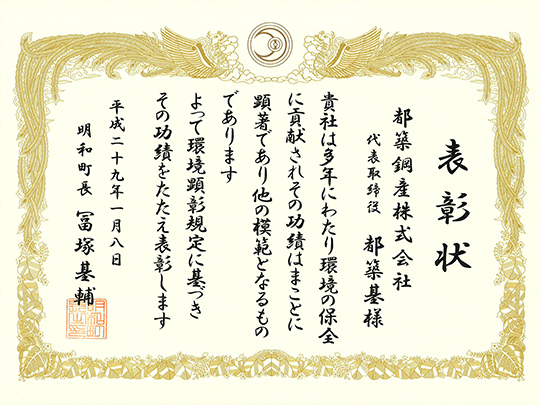 表彰状
都築鋼産株式会社
代表取締役 都築基様
貴社は多年にわたり環境の保全
に貢献されその功績はまことに
顕著であり他の模範となるもの
であります
よって環境顕彰規定に基づき
その功績をたたえ表彰します
平成二十九年一月八日
明和町長 冨塚基輔